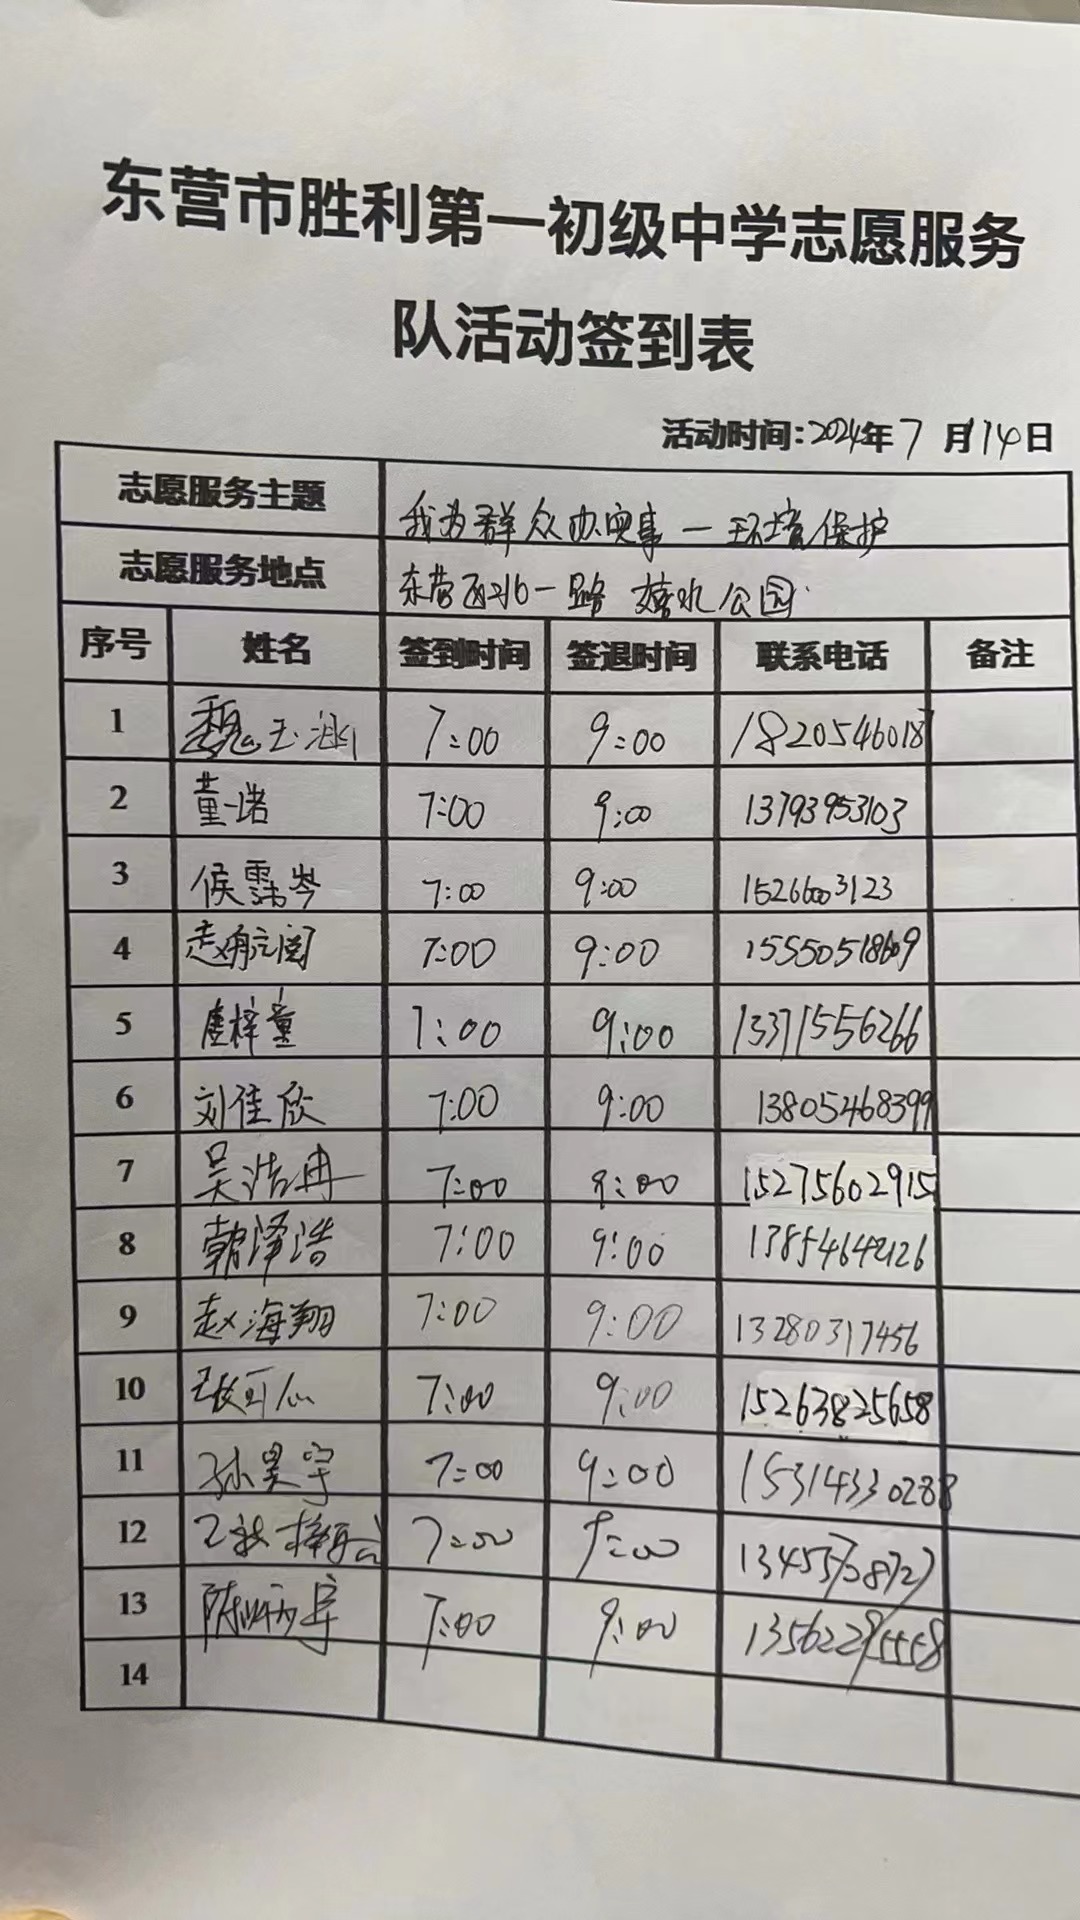 东营市胜利第一初级中学志愿服务
队活动签到表
活动时间:2024年7月14日
志愿服务主题 我为群众办实事—环境保护
志愿服务地点 东营西北一路 公园
序号 姓名 签到时间 签退时间 联系电话 备注
1 魏玉涵 7:00 9:00 18205460187
2 董一诺 7:00 9:00 13793953103
3 侯霈岑 7:00 9:00 15266003123
4 赵航阅 7:00 9:00 15550518609
5 唐梓童 7:00 9:00 13371556266
6 刘佳欣 7:00 9:00 13805468399
7 吴浩冉 7:00 9:00 15275602915
8 韩泽浩 7:00 9:00 13854642126
9 赵海翔 7:00 9:00 13280317456
10 张可心 7:00 9:00 15263825658
11 孙昊宇 7:00 9:00 15314330288
12 7:00 9:00
13 7:00 9:00
14